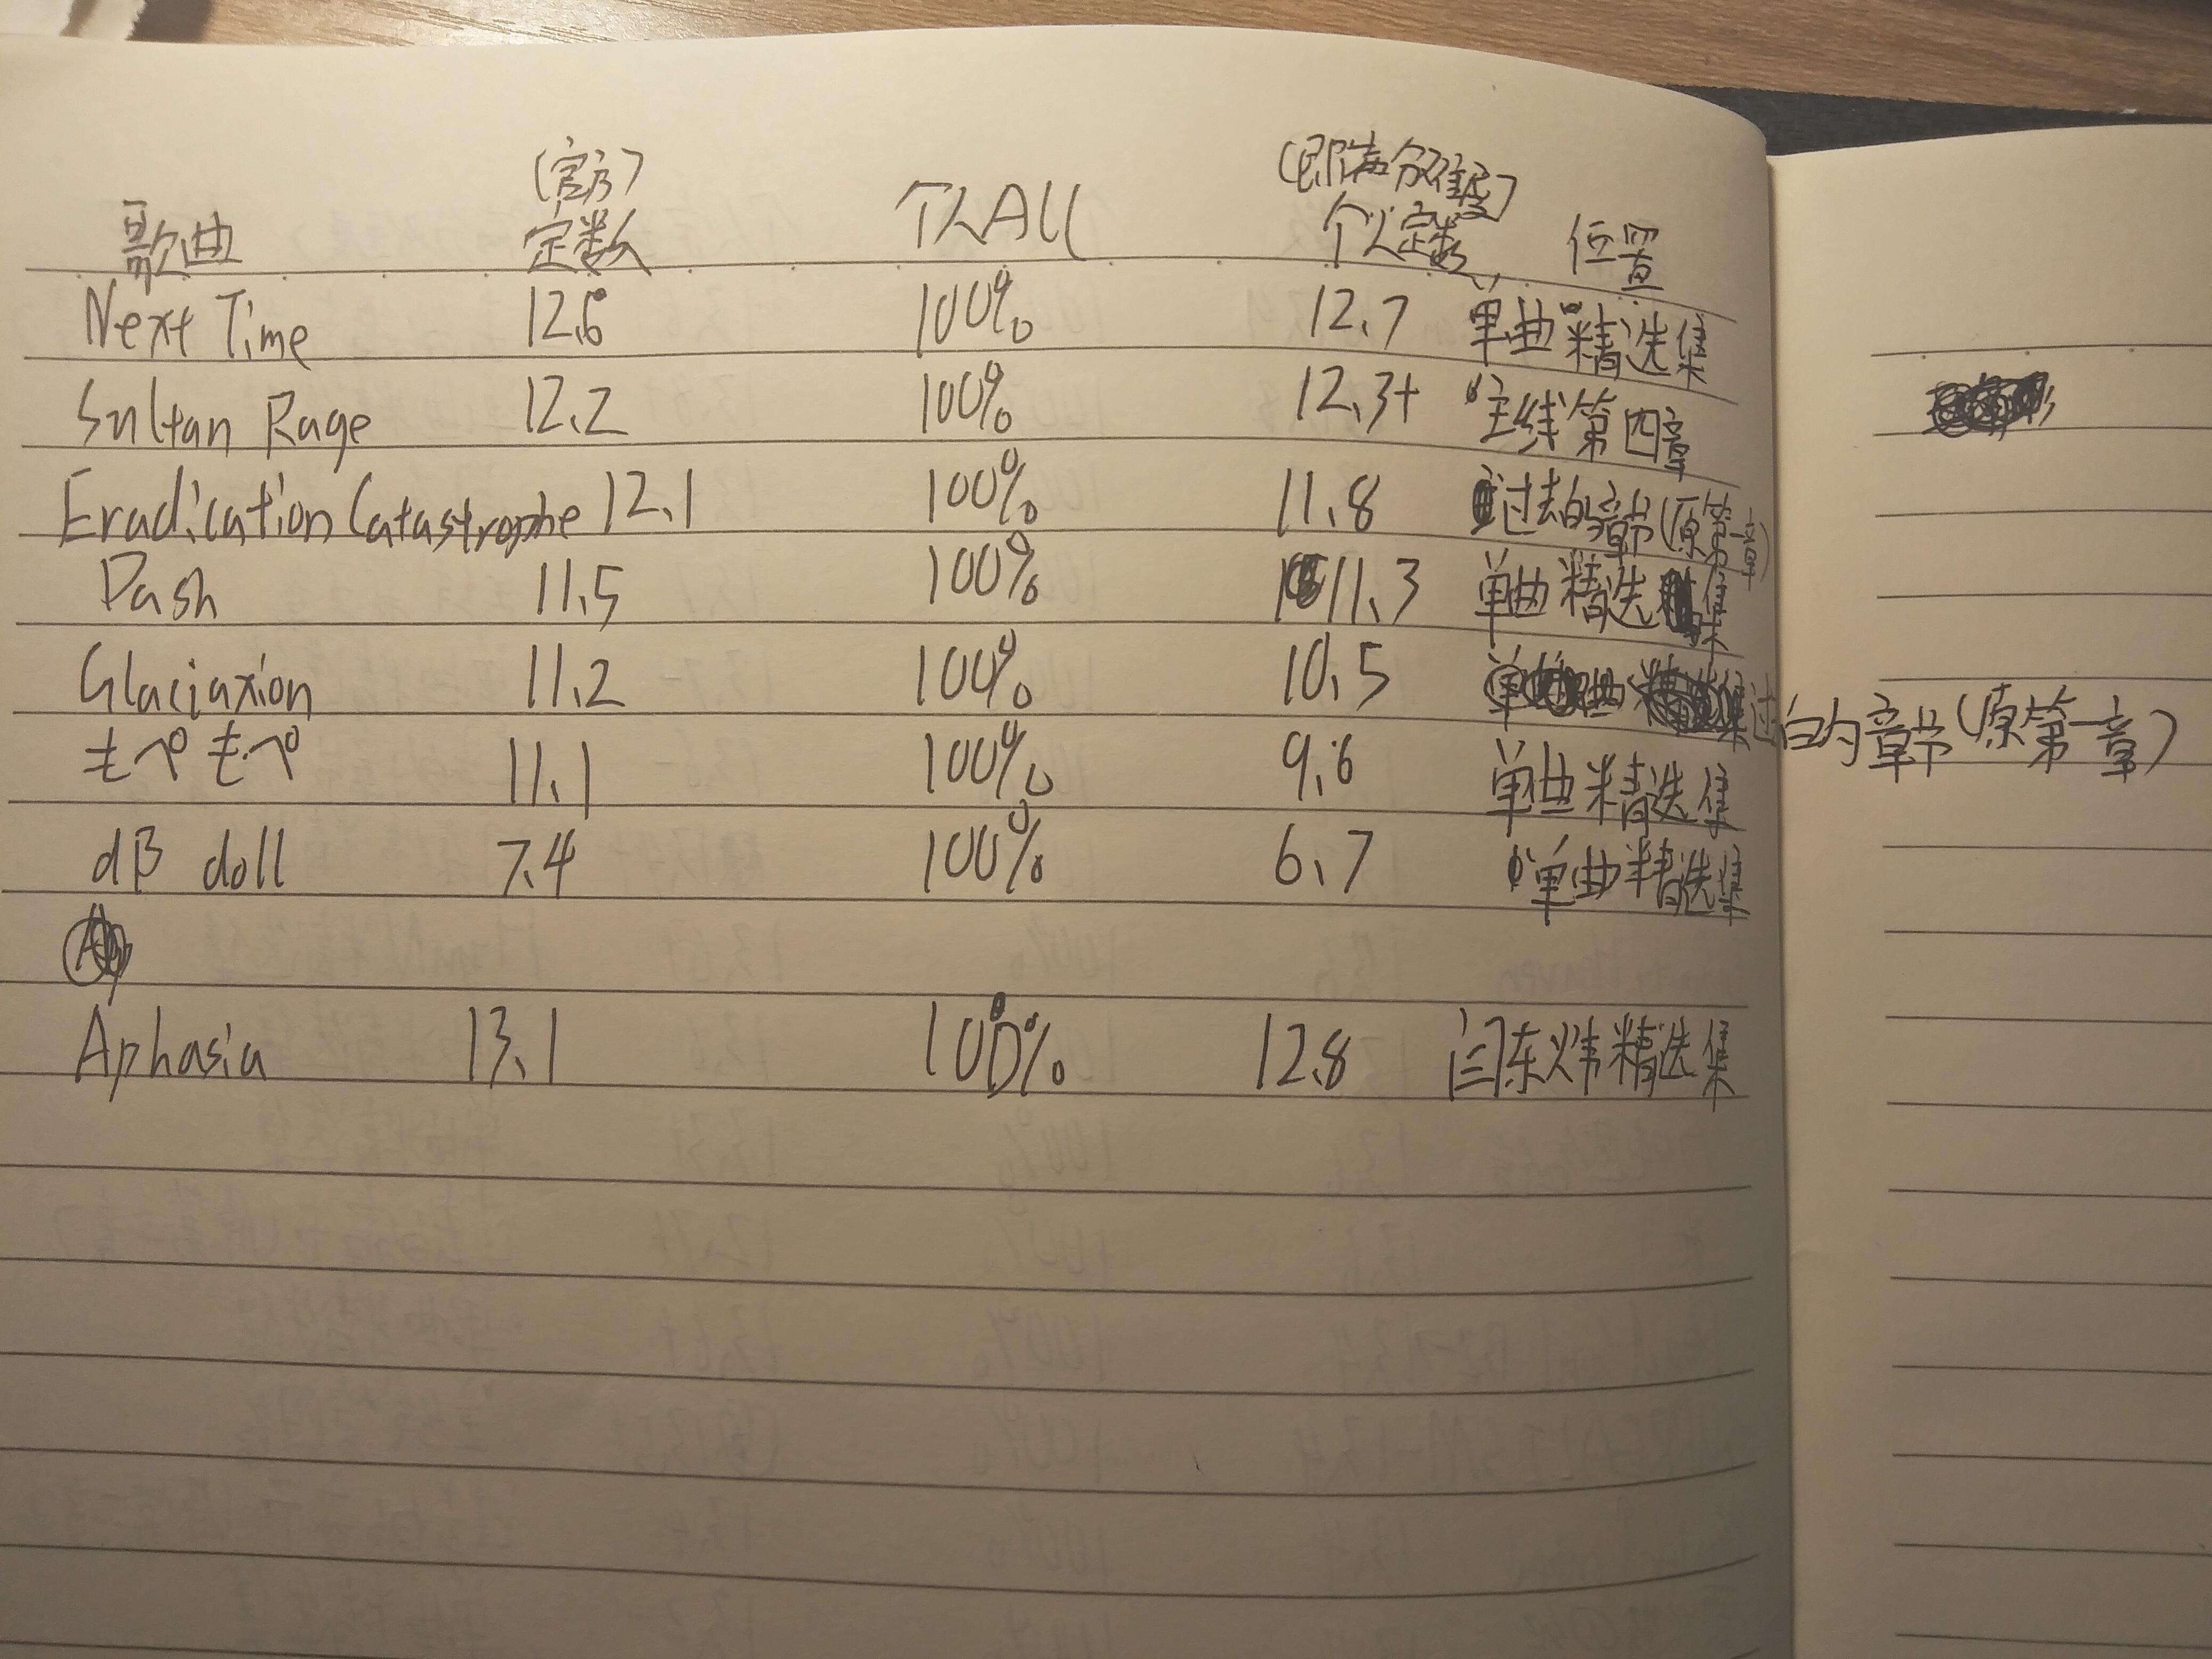 (官方) (即满分难度)
歌曲 定数 个人ALL 个人定数 位置
Next Time 12.6 100% 12.7 单曲精选集
Sultan Rage 12.2 100% 12.3+ 主线第四章
Eradication Catastrophe 12.1 100% 11.8 过去的章节(原第一章)
Dash 11.5 100% 11.3 单曲精选集
Glaciaxion 11.2 100% 10.5 过的章节(原第一章)
もぺもぺ 11.1 100% 9.6 单曲精选集
dB doll 7.4 100% 6.7 单曲精选集
Aphasia 13.1 100% 12.8 闫东炜精选集